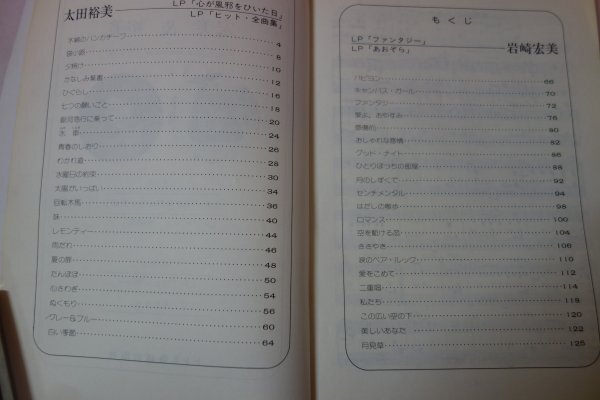 太田裕美
LP「心が風邪をひいた日」
LP「ヒット・全曲集」
木綿のハンカチーフ 4
袋小路 8
夕焼け 10
かなしみ葉書 12
ひぐらし 16
七つの願いごと 18
銀河急行に乗って 20
水曜 24
青春のしおり 26
わかれ道 28
水曜日の約束 30
太陽がいっぱい 34
回転木馬 36
妹 40
レモンティー 44
雨だれ 46
夏の扉 48
たんぽぽ 50
心さわぎ 54
ぬくもり 56
グレー＆ブルー 60
白い季節 64
もくじ
LP「ファンタジー」
LP「あおぞら」
岩崎宏美
パピヨン 66
キャンパス・ガール 70
ファンタジー 72
愛よ、おやすみ 76
感傷的 80
おしゃれな感情 82
グッド・ナイト 86
ひとりぼっちの部屋 88
月のしずくで 92
センチメンタル 94
はだしの散歩 98
ロマンス 100
空を駈ける恋 104
ささやき 106
涙のペア・ルック 110
愛をこめて 112
二重唱 114
私たち 118
この広い空の下 120
美しいあなた 122
月見草 125